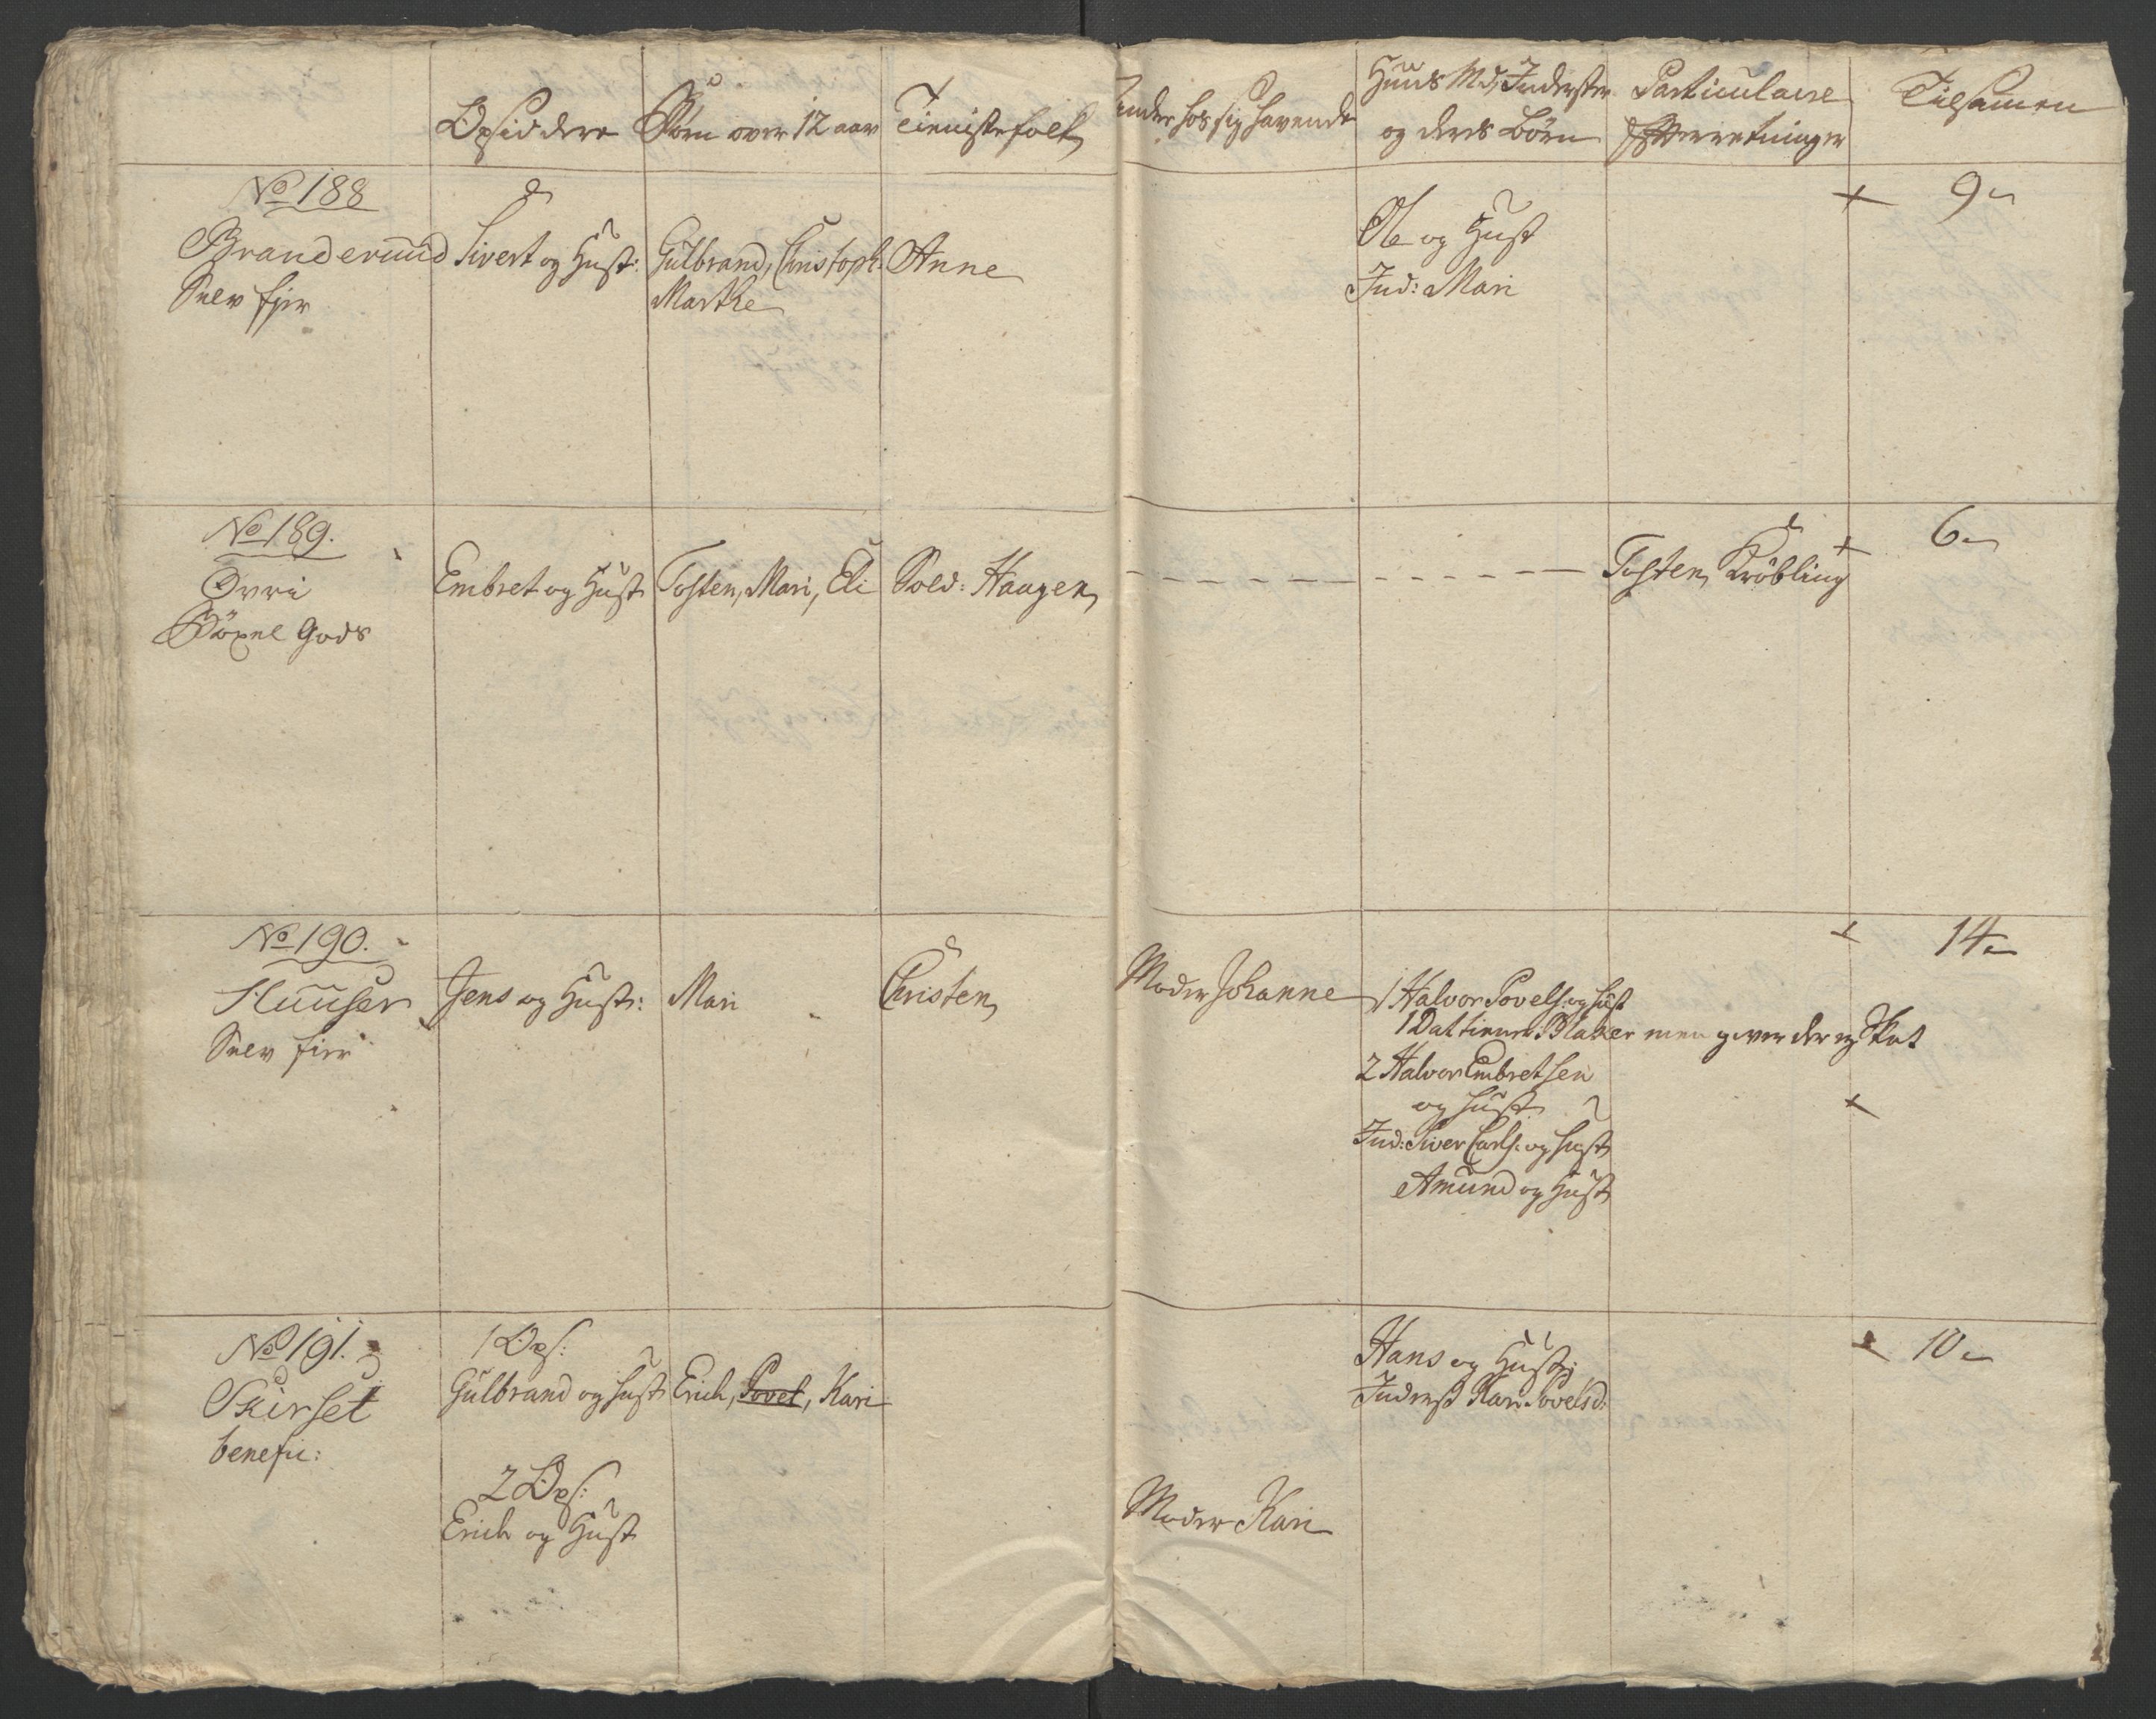 Opsiddere
Børn over 12 aar
Tienistefolk
Andre hos sig havende
Huus Md, Inderster
og deres Børn
Particulaire
Efterretninger
Tilsamen
No 188
Branderuud
Selv Ejer
Sivert og Hust:
Gulbrand, Christoph:
Marthe
Anne
Ole og Hust
Ind: Mari
+ 9
No 189.
Øvri
Böxel Gods
Embret og Hust
Tosten, Mari, Eli
Sold: Haagen
Tosten Kröbling
+ 6
No 190.
Huuser
Selv Eier
Jens og Hustr:
Mari
Christen
Moder Johanne
1 Halvor Povels: og Hust
1 Dat tiener Blaker men giver der ej Skat
2 Halvor Embretsen
og Hust
Ind: Siver Carls: og Hust
Amund og Hust
+ 14
+
No 191.
Skirset
benefic:
1 Ops:
Gulbrand og Hust
Erich, Povel, Kari
2 Ops:
Erich og Hust
Moder Kari
Hans og Hustr:
Inderst Kari Povelsd:
+ 10